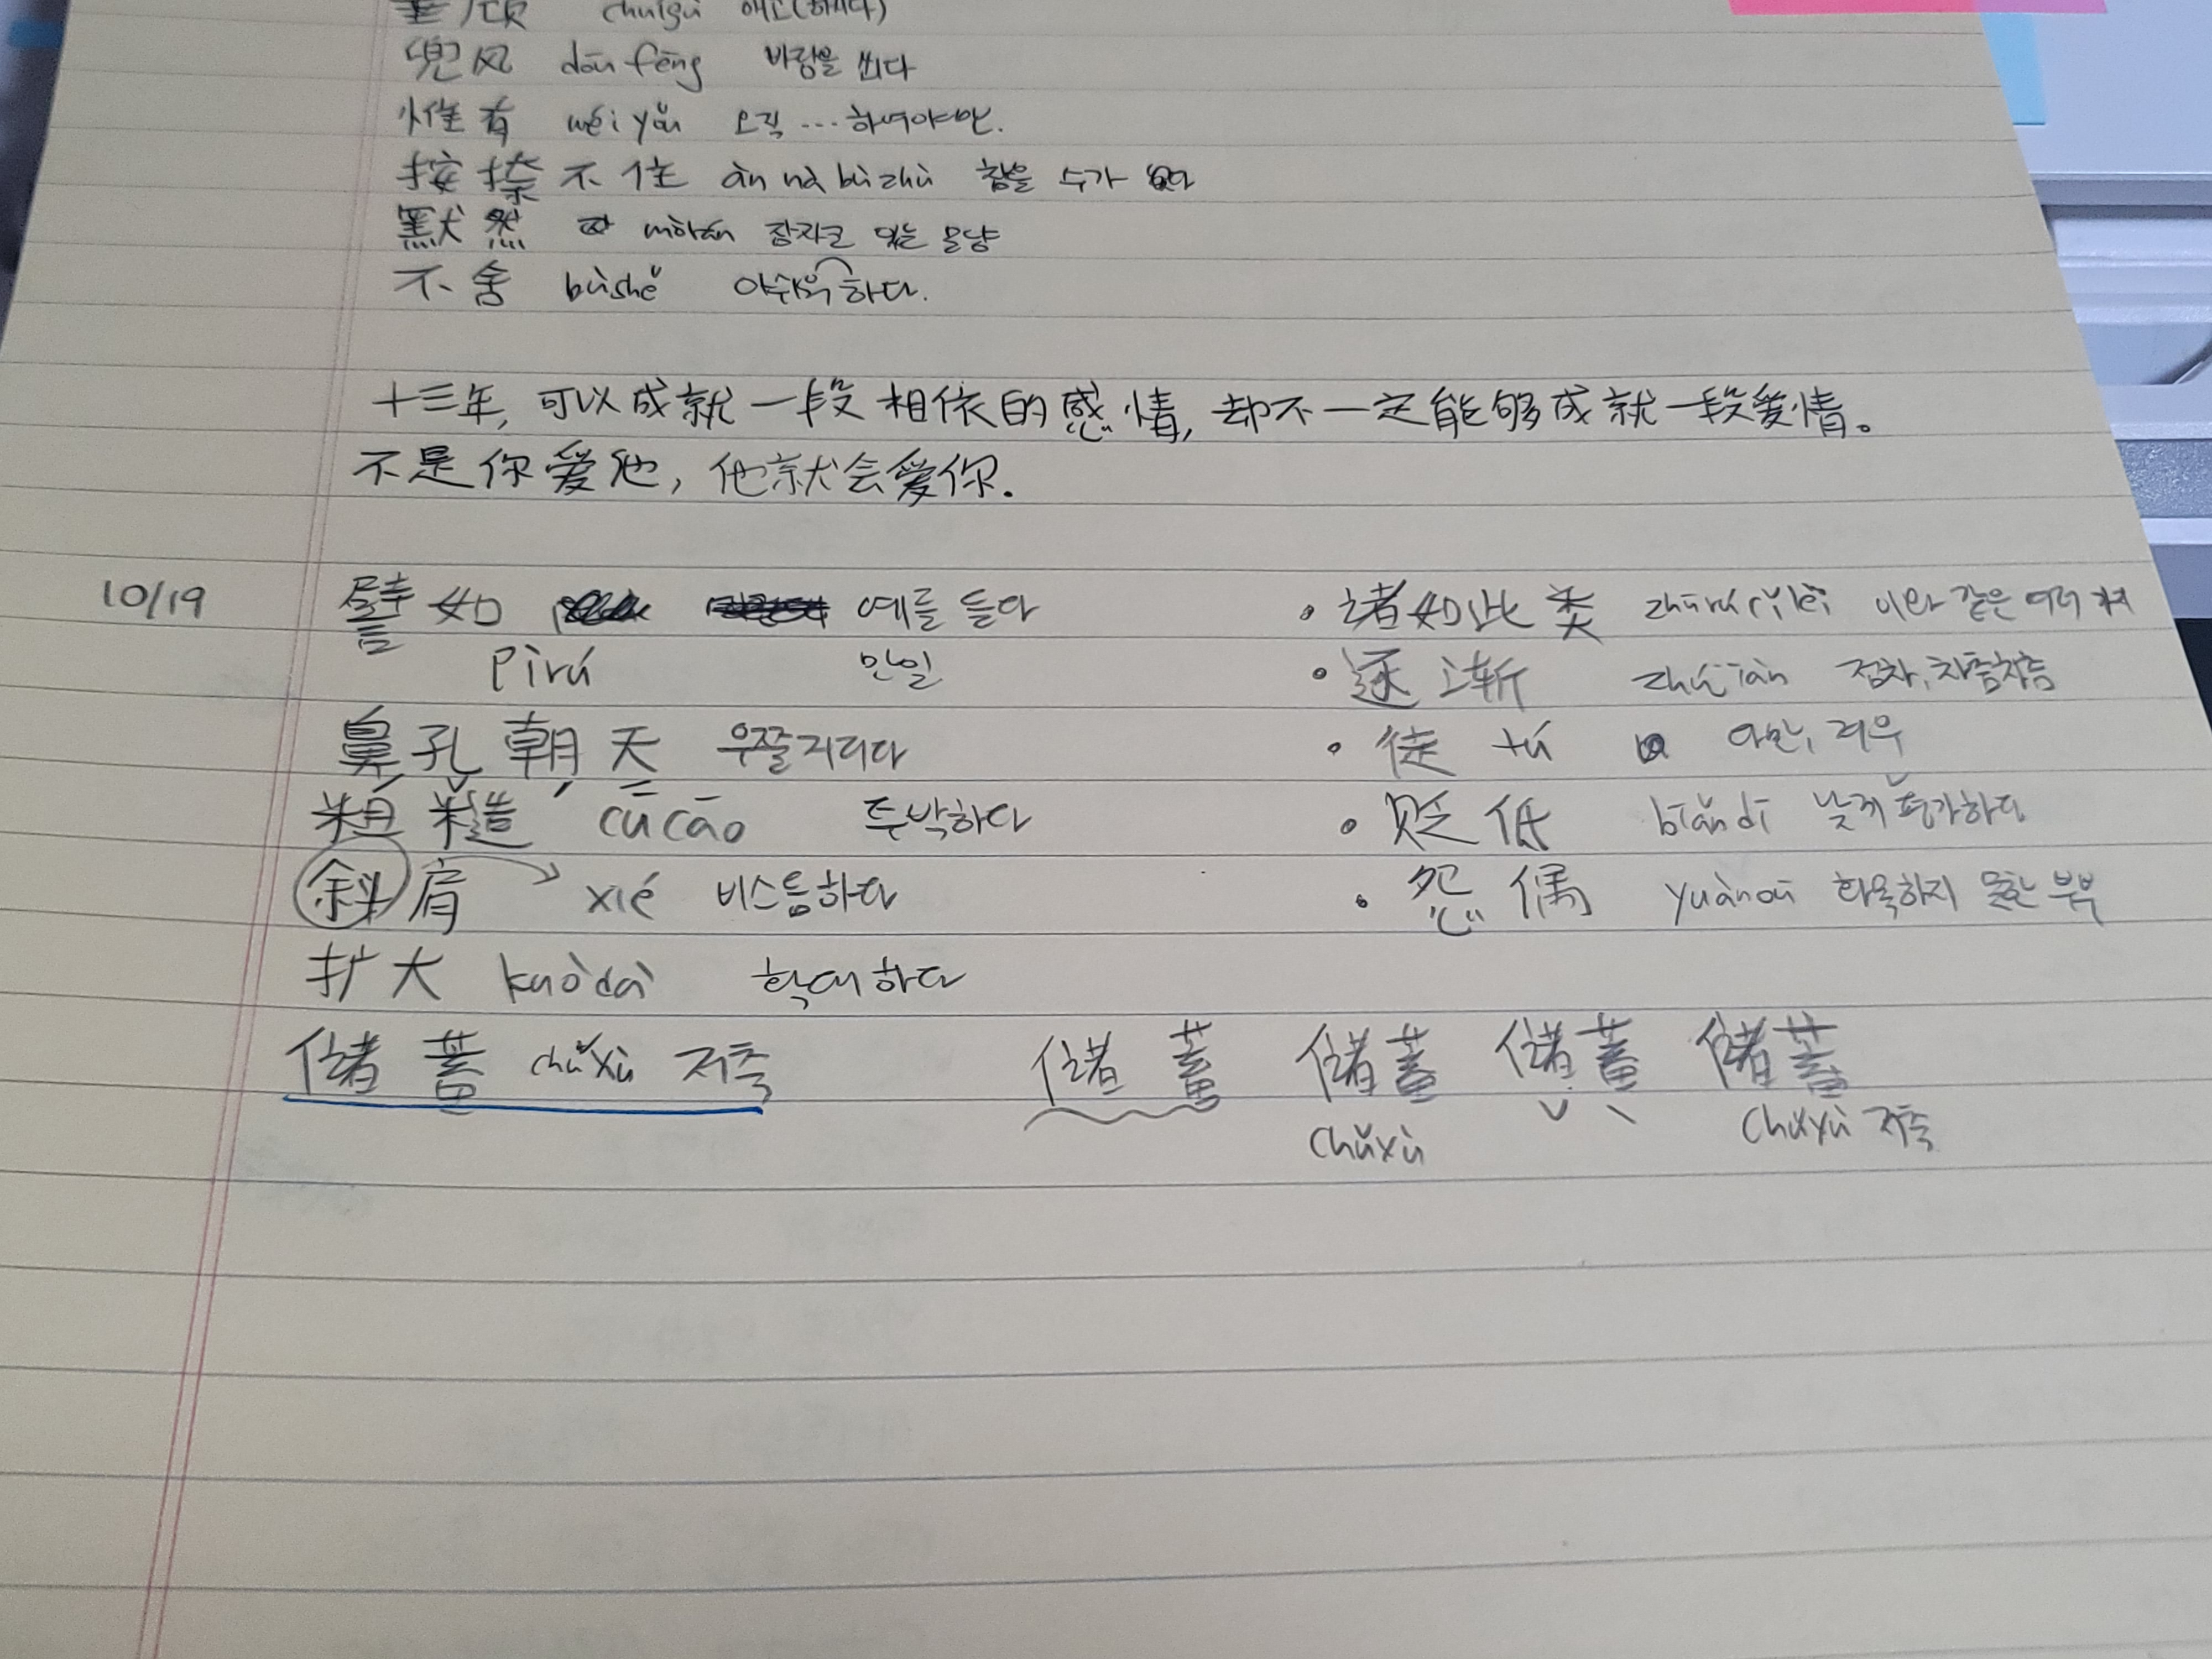 垂顾 chuígù 애고(하시다)
兜风 dōufēng 바람을 쐬다
惟有 wéiyǒu 오직 ... 하여야만.
按捺不住 ànnàbùzhù 참을 수가 없다
默然 mòrán 잠자코 있는 모양
不舍 bùshě 아쉬워하다.
十三年, 可以成就一段相依的感情, 却不一定能够成就一段爱情。
不是你爱他, 他就会爱你.
10/19 譬如 예를 들다
pìrú 만일
鼻孔朝天 우쭐거리다
粗糙 cūcāo 투박하다
斜肩 → xié 비스듬하다
扩大 kuòdà 확대하다
储蓄 chǔxù 저축 储蓄 储蓄 储蓄 储蓄
chǔxù chǔxù 저축
• 诸如此类 zhūrúcǐlèi 이와 같은 여러 가지
• 逐渐 zhújiàn 점차, 차츰차츰
• 徒 tú 다만, 겨우
• 贬低 biǎndī 낮게 평가하다
• 怨偶 yuànǒu 화목하지 못한 부부